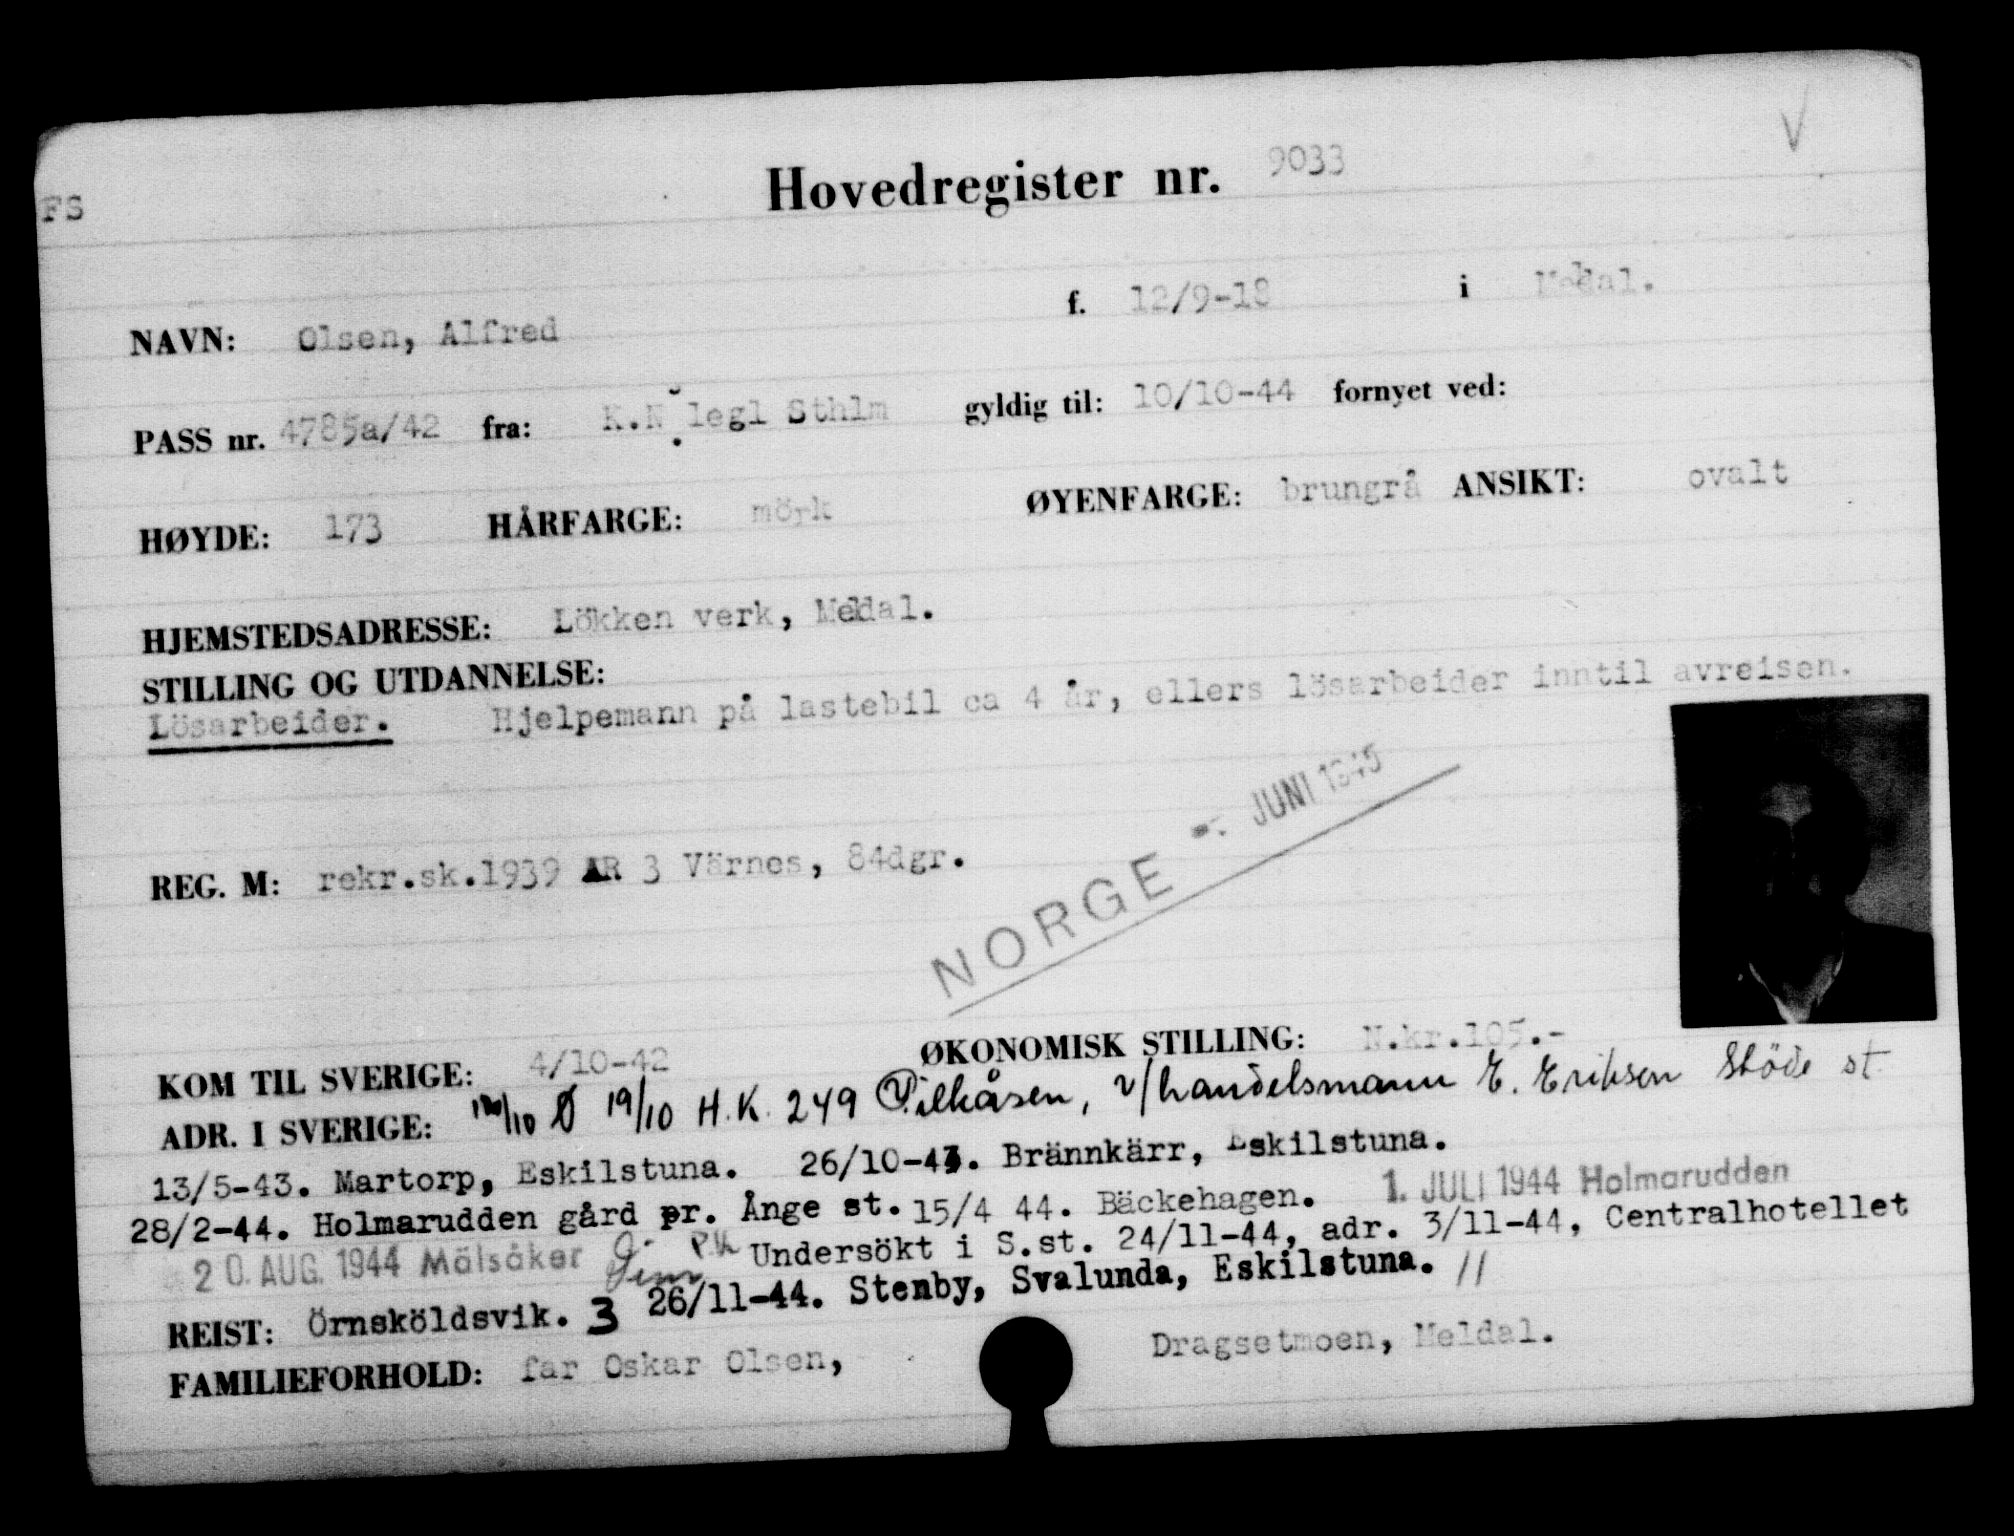 V
FS Hovedregister nr. 9033
NAVN: Olsen, Alfred f. 12/9-18 i Meldal.
PASS nr. 4785a/42 fra: K.N. legl Sthlm gyldig til: 10/10-44 fornyet ved:
HØYDE: 173 HÅRFARGE: mörk ØYENFARGE: brungrå ANSIKT: ovalt
HJEMSTEDSADRESSE: Lökken verk, Meldal.
STILLING OG UTDANNELSE:
Lösarbeider. Hjelpemann på lastebil ca 4 år, ellers lösarbeider inntil avreisen.
JUNI 1945
REG. M: rekr.sk.1939 AR 3 Värnes, 84dgr.
NORGE
KOM TIL SVERIGE: 4/10-42 ØKONOMISK STILLING: N.kr.105.-
ADR. I SVERIGE: Ø 19/10 H.K. 249 Pilkåsen, v/handelsmann E. Eriksen Stöde st.
13/5-43. Martorp, Eskilstuna. 26/10-43. Brännkärr, Eskilstuna.
28/2-44. Holmarudden gård pr. Ånge st. 15/4 44. Bäckehagen. 1. JULI 1944 Holmarudden
20. AUG. 1944 Mälsåker P.K Undersökt i S.st. 24/11-44, adr. 3/11-44, Centralhotellet
REIST: Örnsköldsvik. 3 26/11-44. Stenby, Svalunda, Eskilstuna. //
FAMILIEFORHOLD: far Oskar Olsen, Dragsetmoen, Meldal.